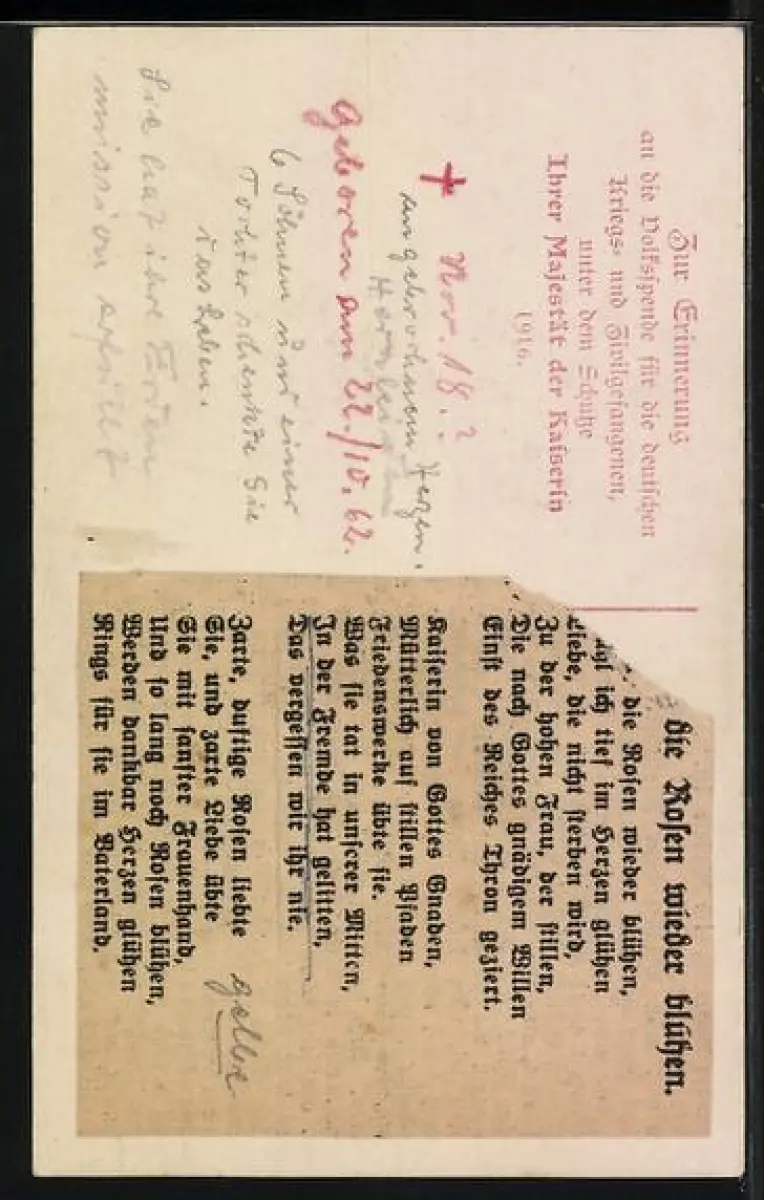 Zur Erinnerung
an die Volksspende für die deutschen
Kriegs- und Zivilgefangenen,
unter dem Schutze
Ihrer Majestät der Kaiserin
1916.
✝ Nov. 18.?
am gebrochenem Herzen.
Geboren am 22./10. 62.
6 Söhnen und einer
Tochter schenkte Sie
das Leben.
Sie hat ihre Erden
mission erfüllt
die Rosen wieder blühen.
die Rosen wieder blühen,
ich tief im Herzen glühen
Liebe, die nicht sterben wird,
Zu der hohen Frau, der stillen,
Die nach Gottes gnädigem Willen
Einst des Reiches Thron geziert.
Kaiserin von Gottes Gnaden,
Mütterlich auf stillen Pfaden
Friedenswerke übte sie.
Was sie tat in unserer Mitten,
In der Fremde hat gelitten,
Das vergessen wir ihr nie.
Zarte, duftige Rosen liebte
Sie, und zarte Liebe übte
Sie mit sanfter Frauenhand,
Und so lang noch Rosen blühen,
Werden dankbar Herzen glühen
Rings für sie im Vaterland.
gelbe